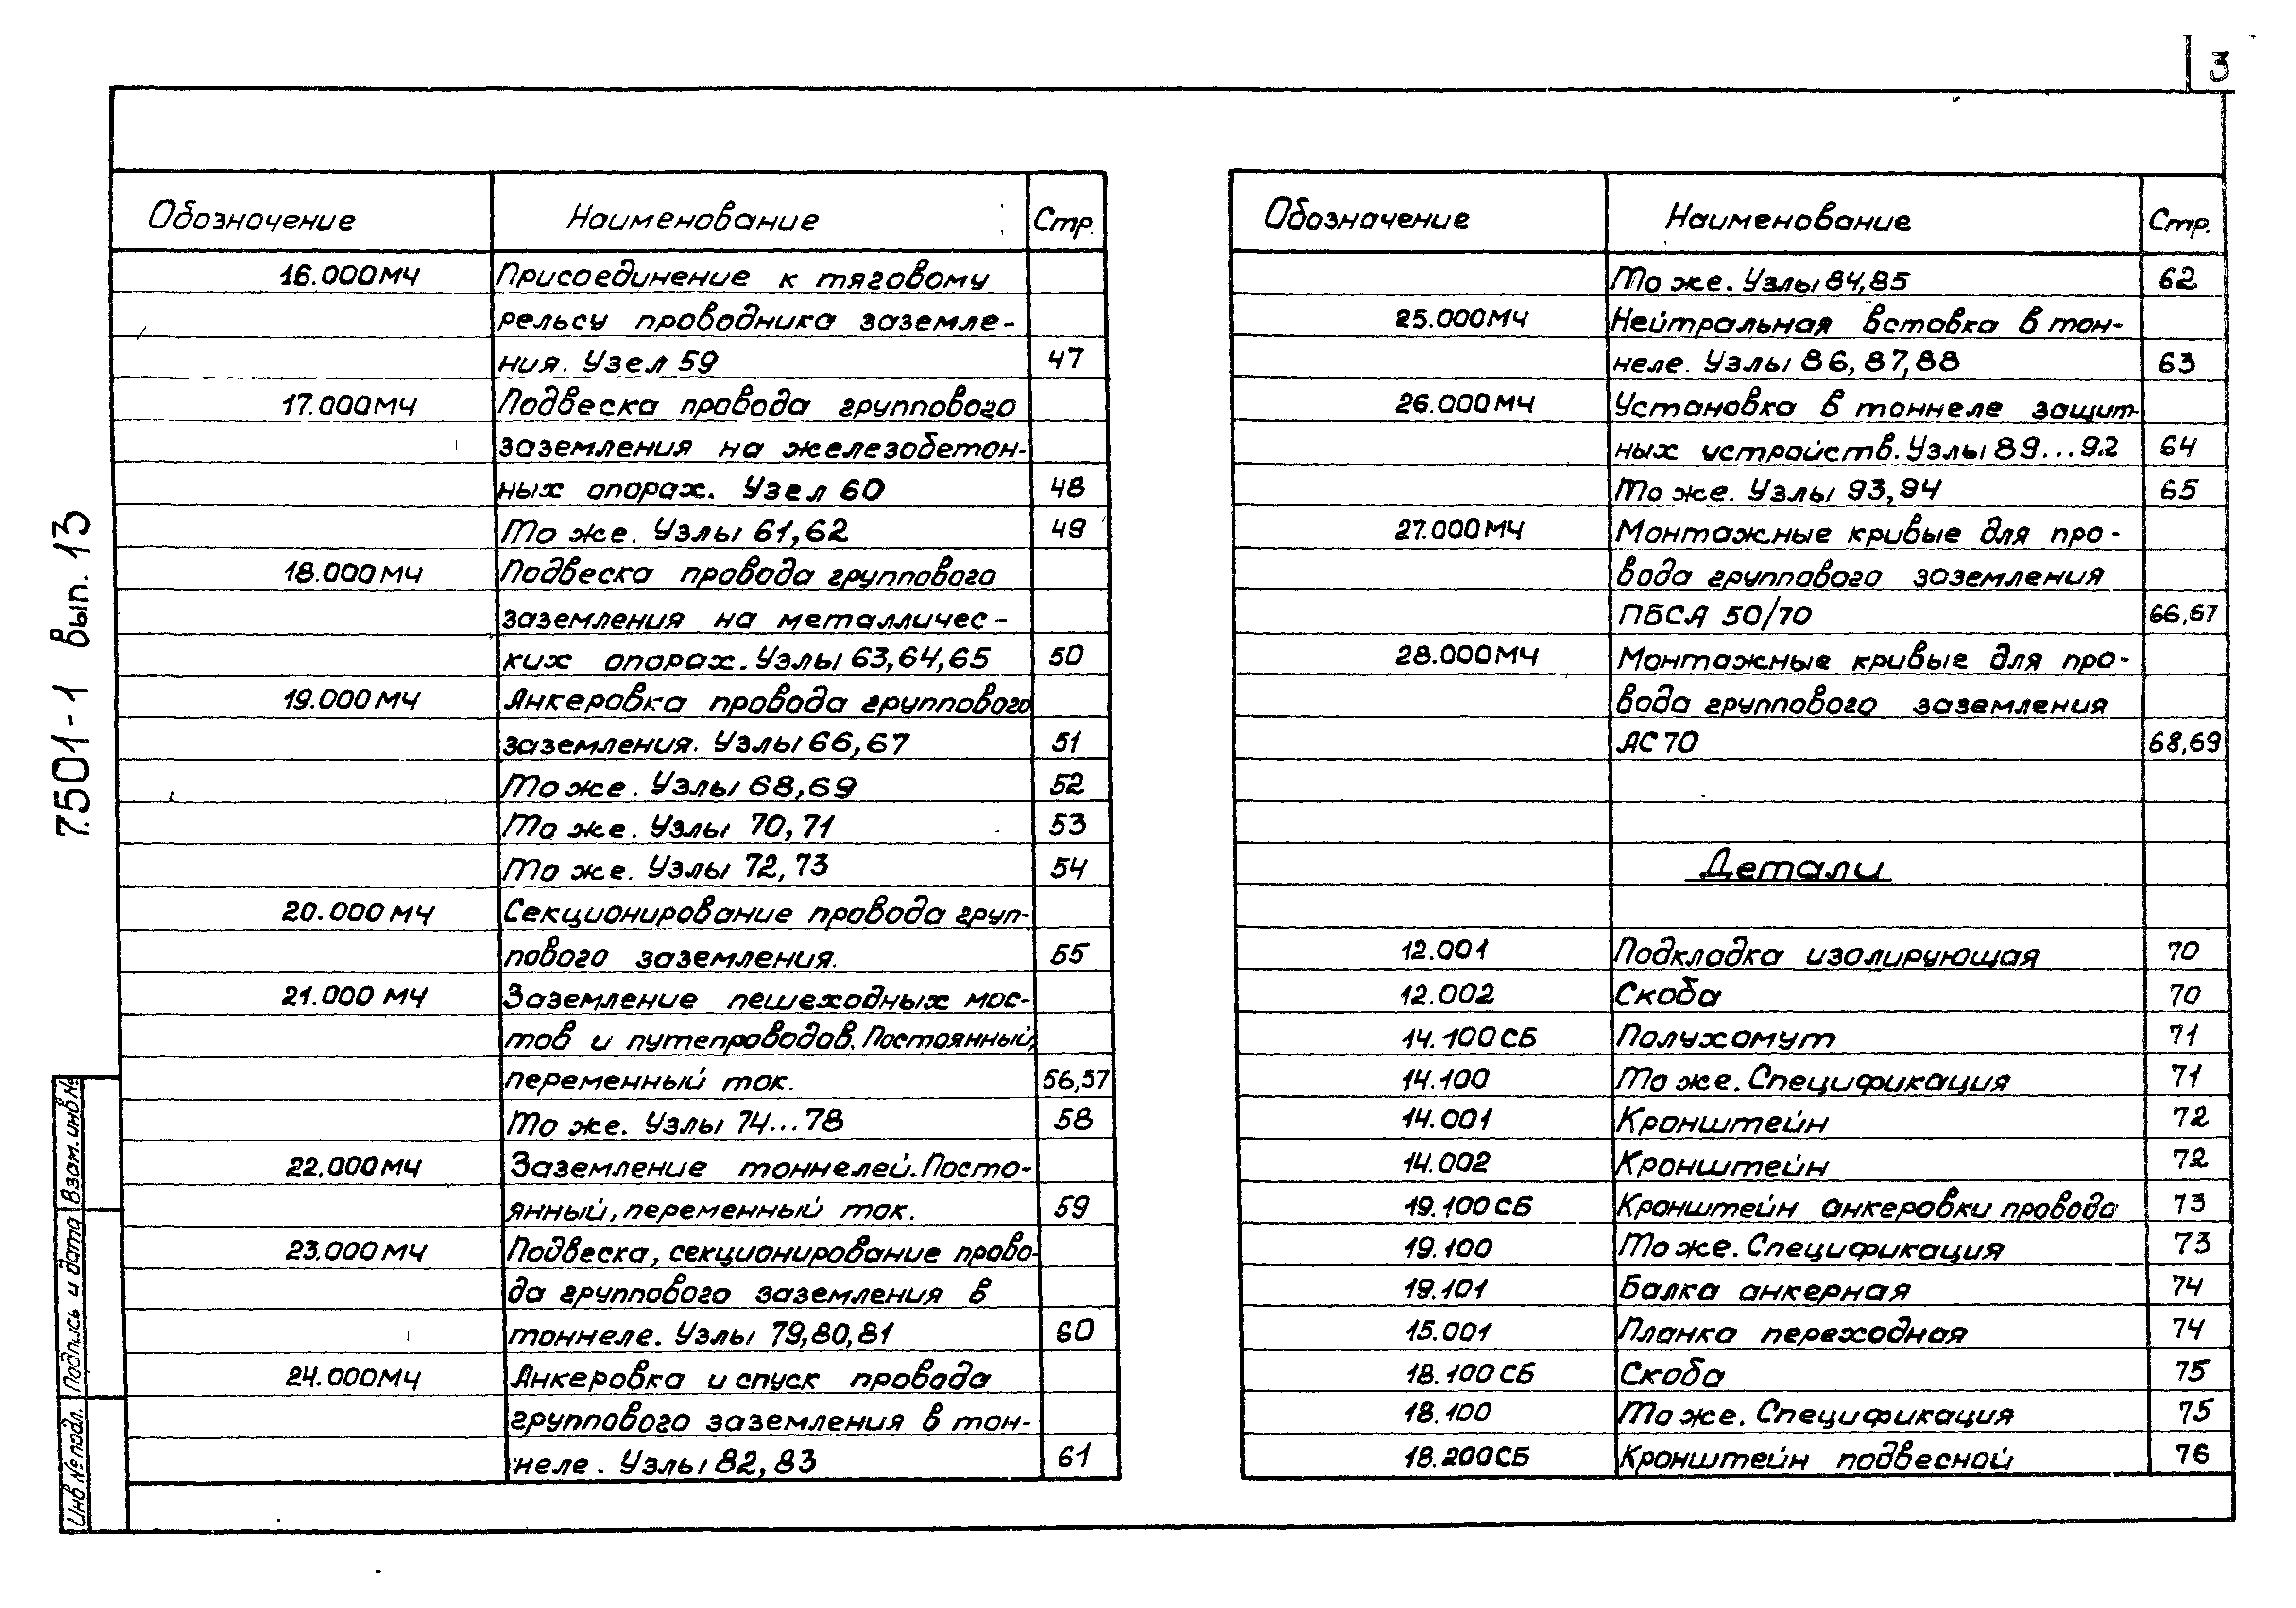 3
7.501-1 вып. 13
Обозначение Наименование Стр.
16.000МЧ Присоединение к тяговому
рельсу проводника заземле-
ния. Узел 59 47
17.000МЧ Подвеска провода группового
заземления на железобетон-
ных опорах. Узел 60 48
То же. Узлы 61,62 49
18.000МЧ Подвеска провода группового
заземления на металличес-
ких опорах. Узлы 63,64,65 50
19.000МЧ Анкеровка провода группового
заземления. Узлы 66,67 51
То же. Узлы 68,69 52
То же. Узлы 70,71 53
То же. Узлы 72,73 54
20.000МЧ Секционирование провода груп-
пового заземления. 55
21.000 МЧ Заземление пешеходных мос-
тов и путепроводов. Постоянный,
переменный ток. 56,57
То же. Узлы 74...78 58
22.000МЧ Заземление тоннелей. Посто-
янный, переменный ток. 59
23.000МЧ Подвеска, секционирование прово-
да группового заземления в
тоннеле. Узлы 79,80,81 60
24.000МЧ Анкеровка и спуск провода
группового заземления в тон-
неле. Узлы 82,83 61
Обозначение Наименование Стр.
То же. Узлы 84,85 62
25.000МЧ Нейтральная вставка в тон-
неле. Узлы 86,87,88 63
26.000МЧ Установка в тоннеле защит-
ных устройств. Узлы 89...92 64
То же. Узлы 93,94 65
27.000МЧ Монтажные кривые для про-
вода группового заземления
ПБСА 50/70 66,67
28.000МЧ Монтажные кривые для про-
вода группового заземления
АС 70 68,69
Детали
12.001 Подкладка изолирующая 70
12.002 Скоба 70
14.100СБ Полухомут 71
14.100 То же. Спецификация 71
14.001 Кронштейн 72
14.002 Кронштейн 72
19.100СБ Кронштейн анкеровки провода 73
19.100 То же. Спецификация 73
19.101 Балка анкерная 74
15.001 Планка переходная 74
18.100СБ Скоба 75
18.100 То же. Спецификация 75
18.200СБ Кронштейн подвесной 76
Взам. инв №
Подпись и дата
Инв № подл.